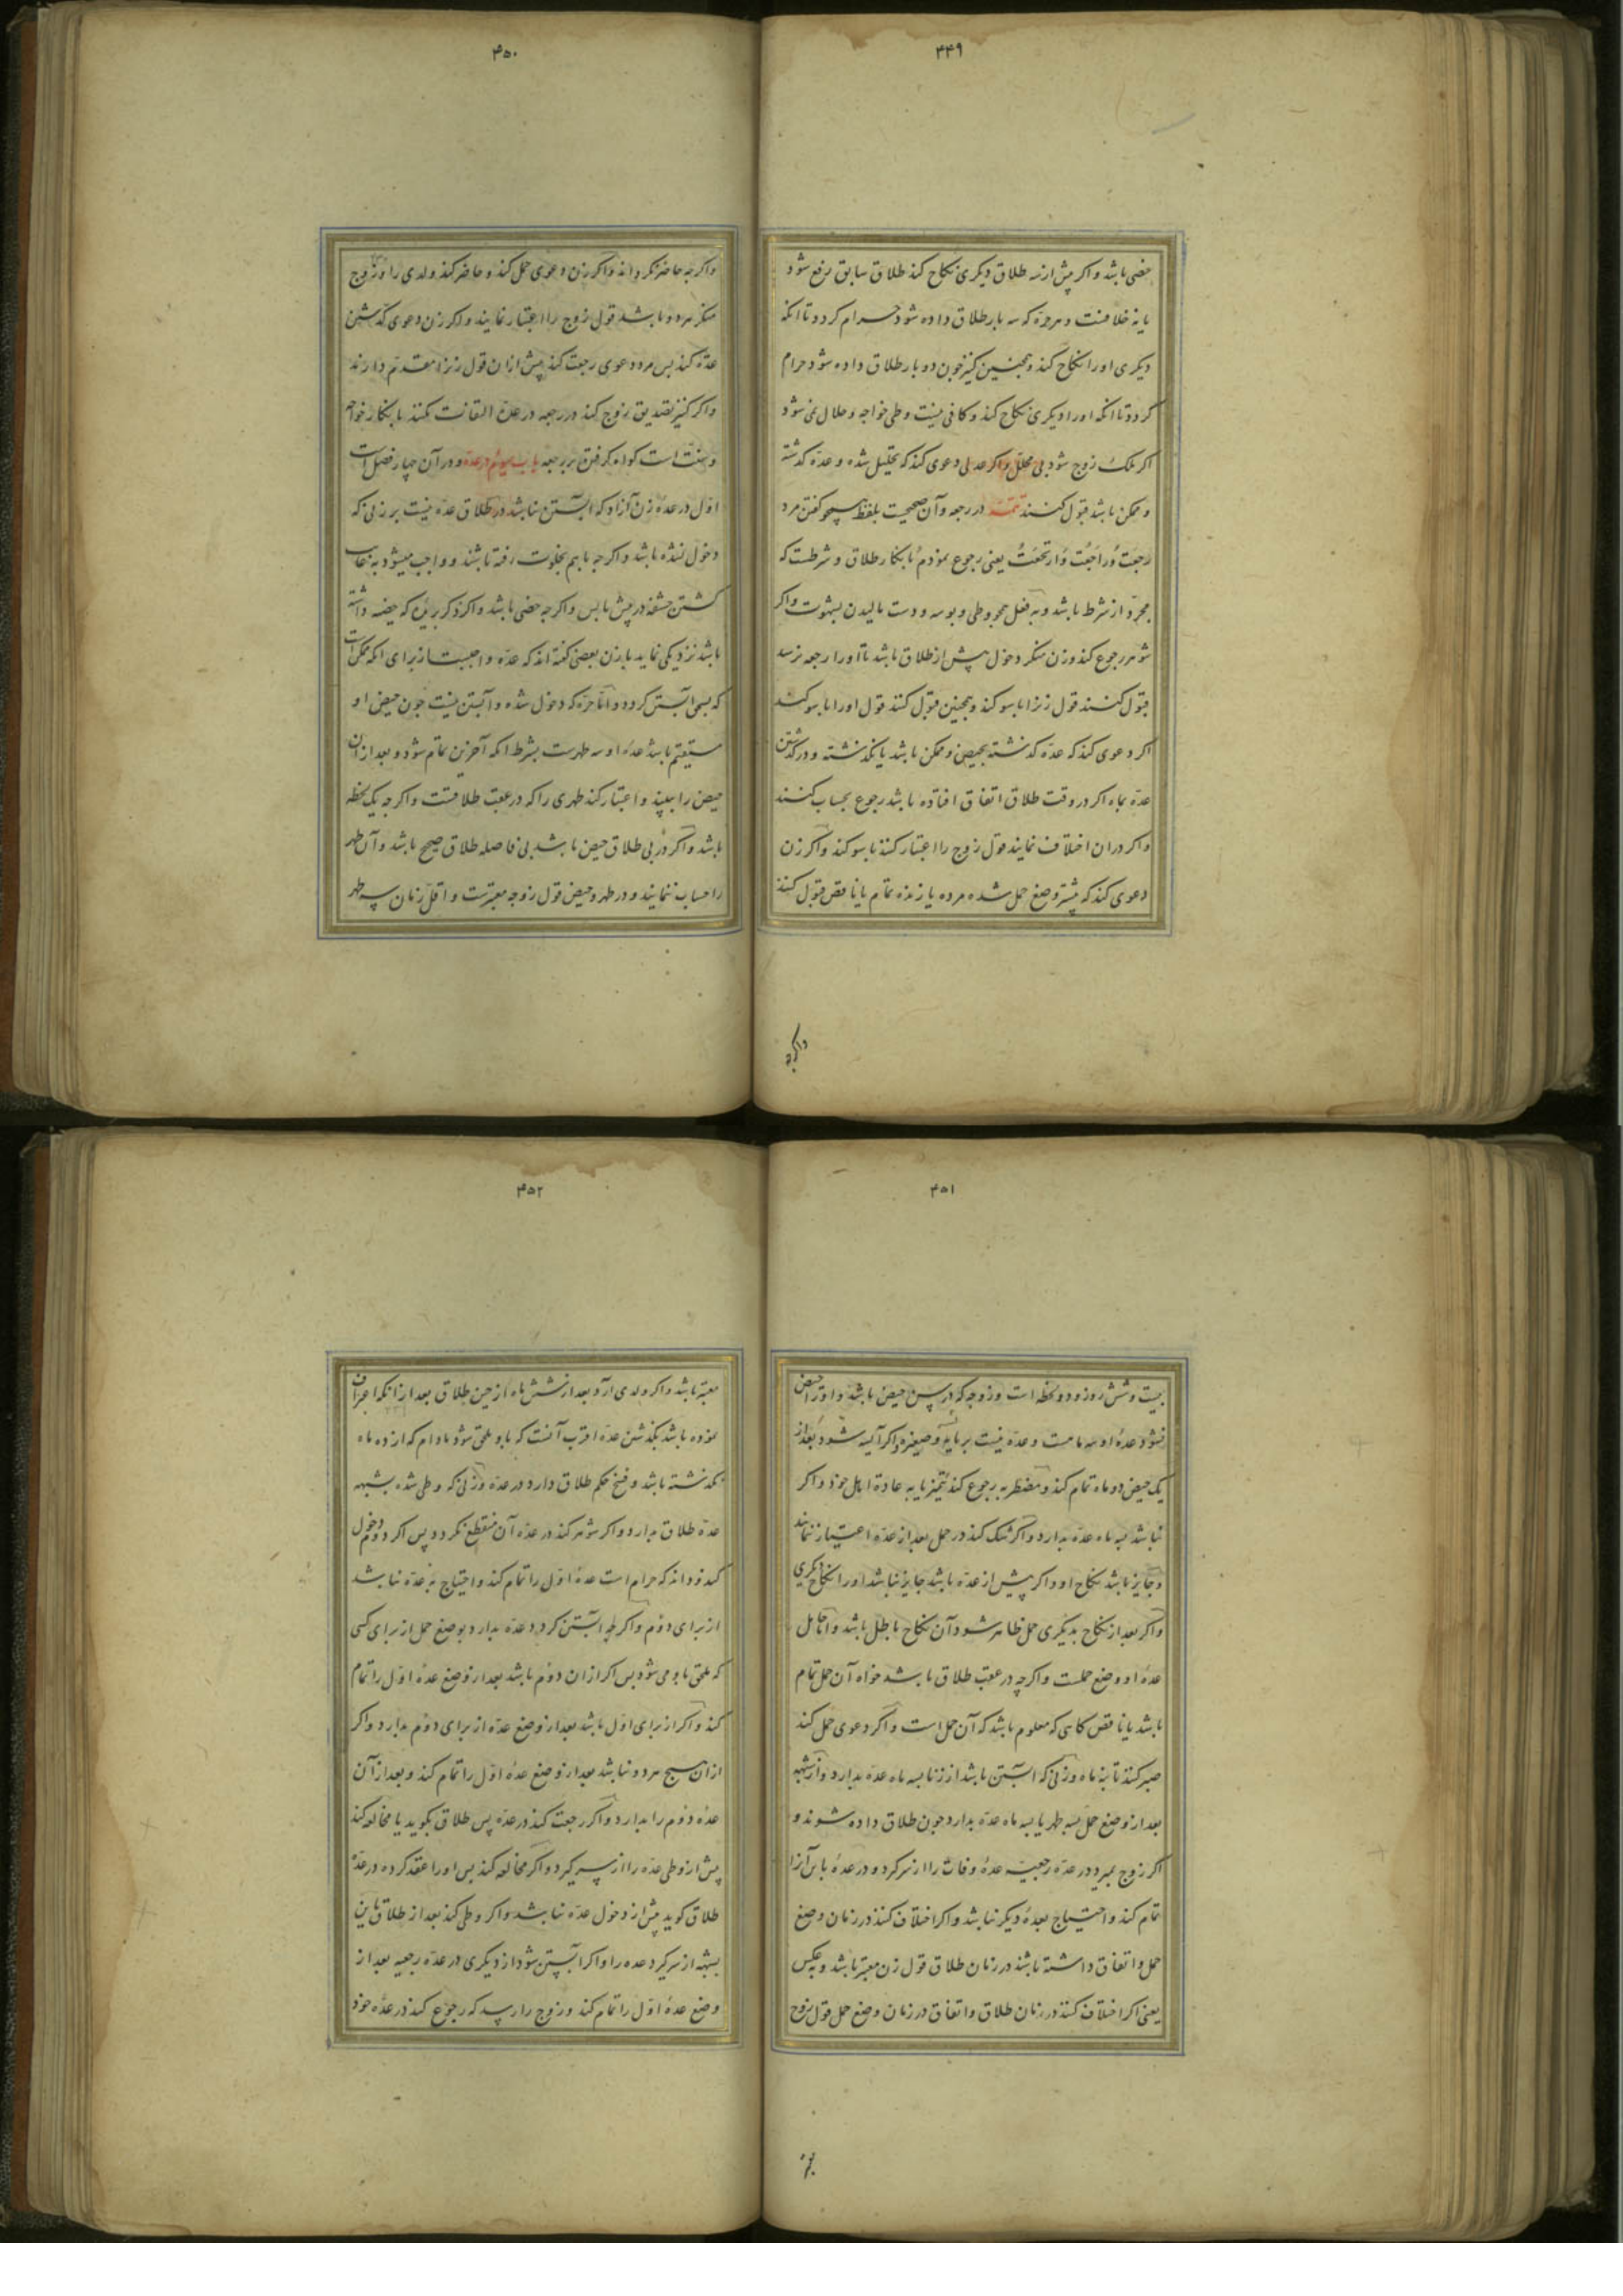 ۴۴۹
خصی باشد و اکر پیش از سه طلاق دیکری نکاح کند طلاق سابق رفع شود
یا نه خلافست و هر حره که سه بار طلاق داده شود حرام کردد تا انکه
دیکری او را نکاح کند و همچنین کنیز چون دو بار طلاق داده شود حرام
کردد تا انکه او را دیکری نکاح کند و کافی نیست وطی خواجه و حلال نمی شود
اکر ملک زوج شود بی محلل و اکر عدلی دعوی کند که تحلیل شده و عده کذشته
و ممکن باشد قبول کنند تتمه در رجعه و آن صحیحست بلفظ همچو کفتن مرد
رجعت و راجعت و ارتجعت یعنی رجوع نمودم نا بانکار طلاق و شرطست که
مجرد از شرط باشد و نه فعل همچو وطی و بوسه و دست مالیدن بشهوت و اکر
شوهر رجوع کند و زن منکر دخول پیش از طلاق باشد تا او را رجعه نرسد
قبول کنند قول زنرا با سوکند و همچنین قبول کنند قول او را با سوکند
اکر دعوی کند که عده کذشته بحیض و ممکن باشد یا نکذشته و در کذشتن
عده بماه اکر در وقت طلاق اتفاق افتاده باشد رجوع بحساب کنند
و اکر دران اختلاف نمایند قول زوج را اعتبار کنند با سوکند و اکر زن
دعوی کند که پیشتر وضع حمل شده مرده یا زنده تمام یا ناقص قبول کنند
واکرچه
۴۵۰
و اکرچه حاضر نکرداند و اکر زن دعوی حمل کند و حاضر کند ولدی را و زوج
منکر هر دو باشد قول زوج را اعتبار نمایند و اکر زن دعوی کذشتن
عده کند پس مرد دعوی رجعت کند پیش ازان قول زنرا مقدم دارند
و اکر کنیز تصدیق زوج کند در رجعه در عده التفات نکنند بانکار خواجه
و سنت است کواه کرفتن بر رجعه باب سیوم در عده و در آن چهار فصل است
اول در عده زن آزاد که آبستن نباشد در طلاق عده نیست بر زنی که
دخول نشده باشد و اکرچه باهم بخلوت رفته باشند و واجب میشود به غایب
کشتن حشفه در پیش یا پس و اکرچه خصی باشد و اکر ذکر بریده که خصیه داشته
باشد نزدیکی نماید با زن بعضی کفته اند که عده واجبست از برای انکه ممکن است
که بسحق آبستن کردد و اما حره که دخول شده و آبستن نیست چون حیض او
مستقیم باشد عده او سه طهرست بشرط انکه آخرین تمام شود و بعد از ان
حیض را ببیند و اعتبار کند طهری را که در عقب طلاقست و اکرچه یک لحظه
باشد و اکر در پی طلاق حیض باشد بی فاصله طلاق صحیح باشد و آن طهر
را حساب ننمایند و در طهر و حیض قول زوجه معتبرست و اقل زمان سه طهر
۴۵۱
بیست و شش روز و دو لحظه است و زوجه که در سن حیض باشد و او را حیض
نشود عده او سه ماهست و عده نیست بر یایسه و صغیره و اکر آیسه شود بعد از
یک حیض دو ماه تمام کند و مضطربه رجوع کند بتمیز یا به عادة اهل خود و اکر
نباشد سه ماه عده بدارد و اکر شک کند در حمل بعد از عده اعتبار ننمایند
و جایز باشد نکاح او و اکر پیش از عده باشد جایز نباشد او را نکاح دیکری
و اکر بعد از نکاح بدیکری حمل ظاهر شود آن نکاح باطل باشد و اما حامل
عده او وضع حملست و اکرچه در عقب طلاق باشد خواه آن حمل تمام
باشد یا ناقص کاهی که معلوم باشد که آن حمل است و اکر دعوی حمل کند
صبر کنند تا نه ماه و زنی که آبستن باشد از زنا بسه ماه عده بدارد و از شبهه
بعد از وضع حمل بسه طهر یا بسه ماه عده بدارد چون طلاق داده شوند و
اکر زوج بمیرد در عده رجعیه عده وفات را از سر کیرد و در عده باین آنرا
تمام کند و احتیاج بعده دیکر نباشد و اکر اختلاف کنند در زمان وضع
حمل و اتفاق داشته باشند در زمان طلاق قول زن معتبر باشد و بعکس
یعنی اکر اختلاف کنند در زمان طلاق و اتفاق در زمان وضع حمل قول زوج
۴۵۲
معتبر باشد و اکر ولدی آرد بعد از شش ماه از حین طلاق بعد از انکه اعتراف
نموده باشد بکذشتن عده اقرب آنست که باو ملحق شود مادام که از ده ماه
نکذشته باشد و فسخ حکم طلاق دارد در عده و زنی که وطی شده بشبهه
عده طلاق بدارد و اکر شوهر کند در عده آن منقطع نکردد پس اکر دوم دخول
کند و داند که حرام است عده اول را تمام کند و احتیاج به عده نباشد
از برای دوم و اکرچه آبستن کردد و عده بدارد بوضع حمل از برای کسی
که ملحق باو می شود پس اکر ازان دوم باشد بعد از وضع عده اول را تمام
کند و اکر از برای اول باشد بعد از وضع عده از برای دوم بدارد و اکر
ازان هیچ هر دو نباشد بعد از وضع عده اول را تمام کند و بعد از آن
عده دوم را بدارد و اکر رجعت کند در عده پس طلاق بکوید یا مخالعه کند
پیش از وطی عده را از سر کیرد و اکر مخالعه کند پس او را عقد کرده در عده
طلاق کوید پیش از دخول عده نباشد و اکر وطی کند بعد از طلاق باین
بشبهه از سر کیرد عده را و اکر آبستن شود از دیکری در عده رجعیه بعد از
وضع عده اول را تمام کند و زوج را رسد که رجوع کند در عده خود